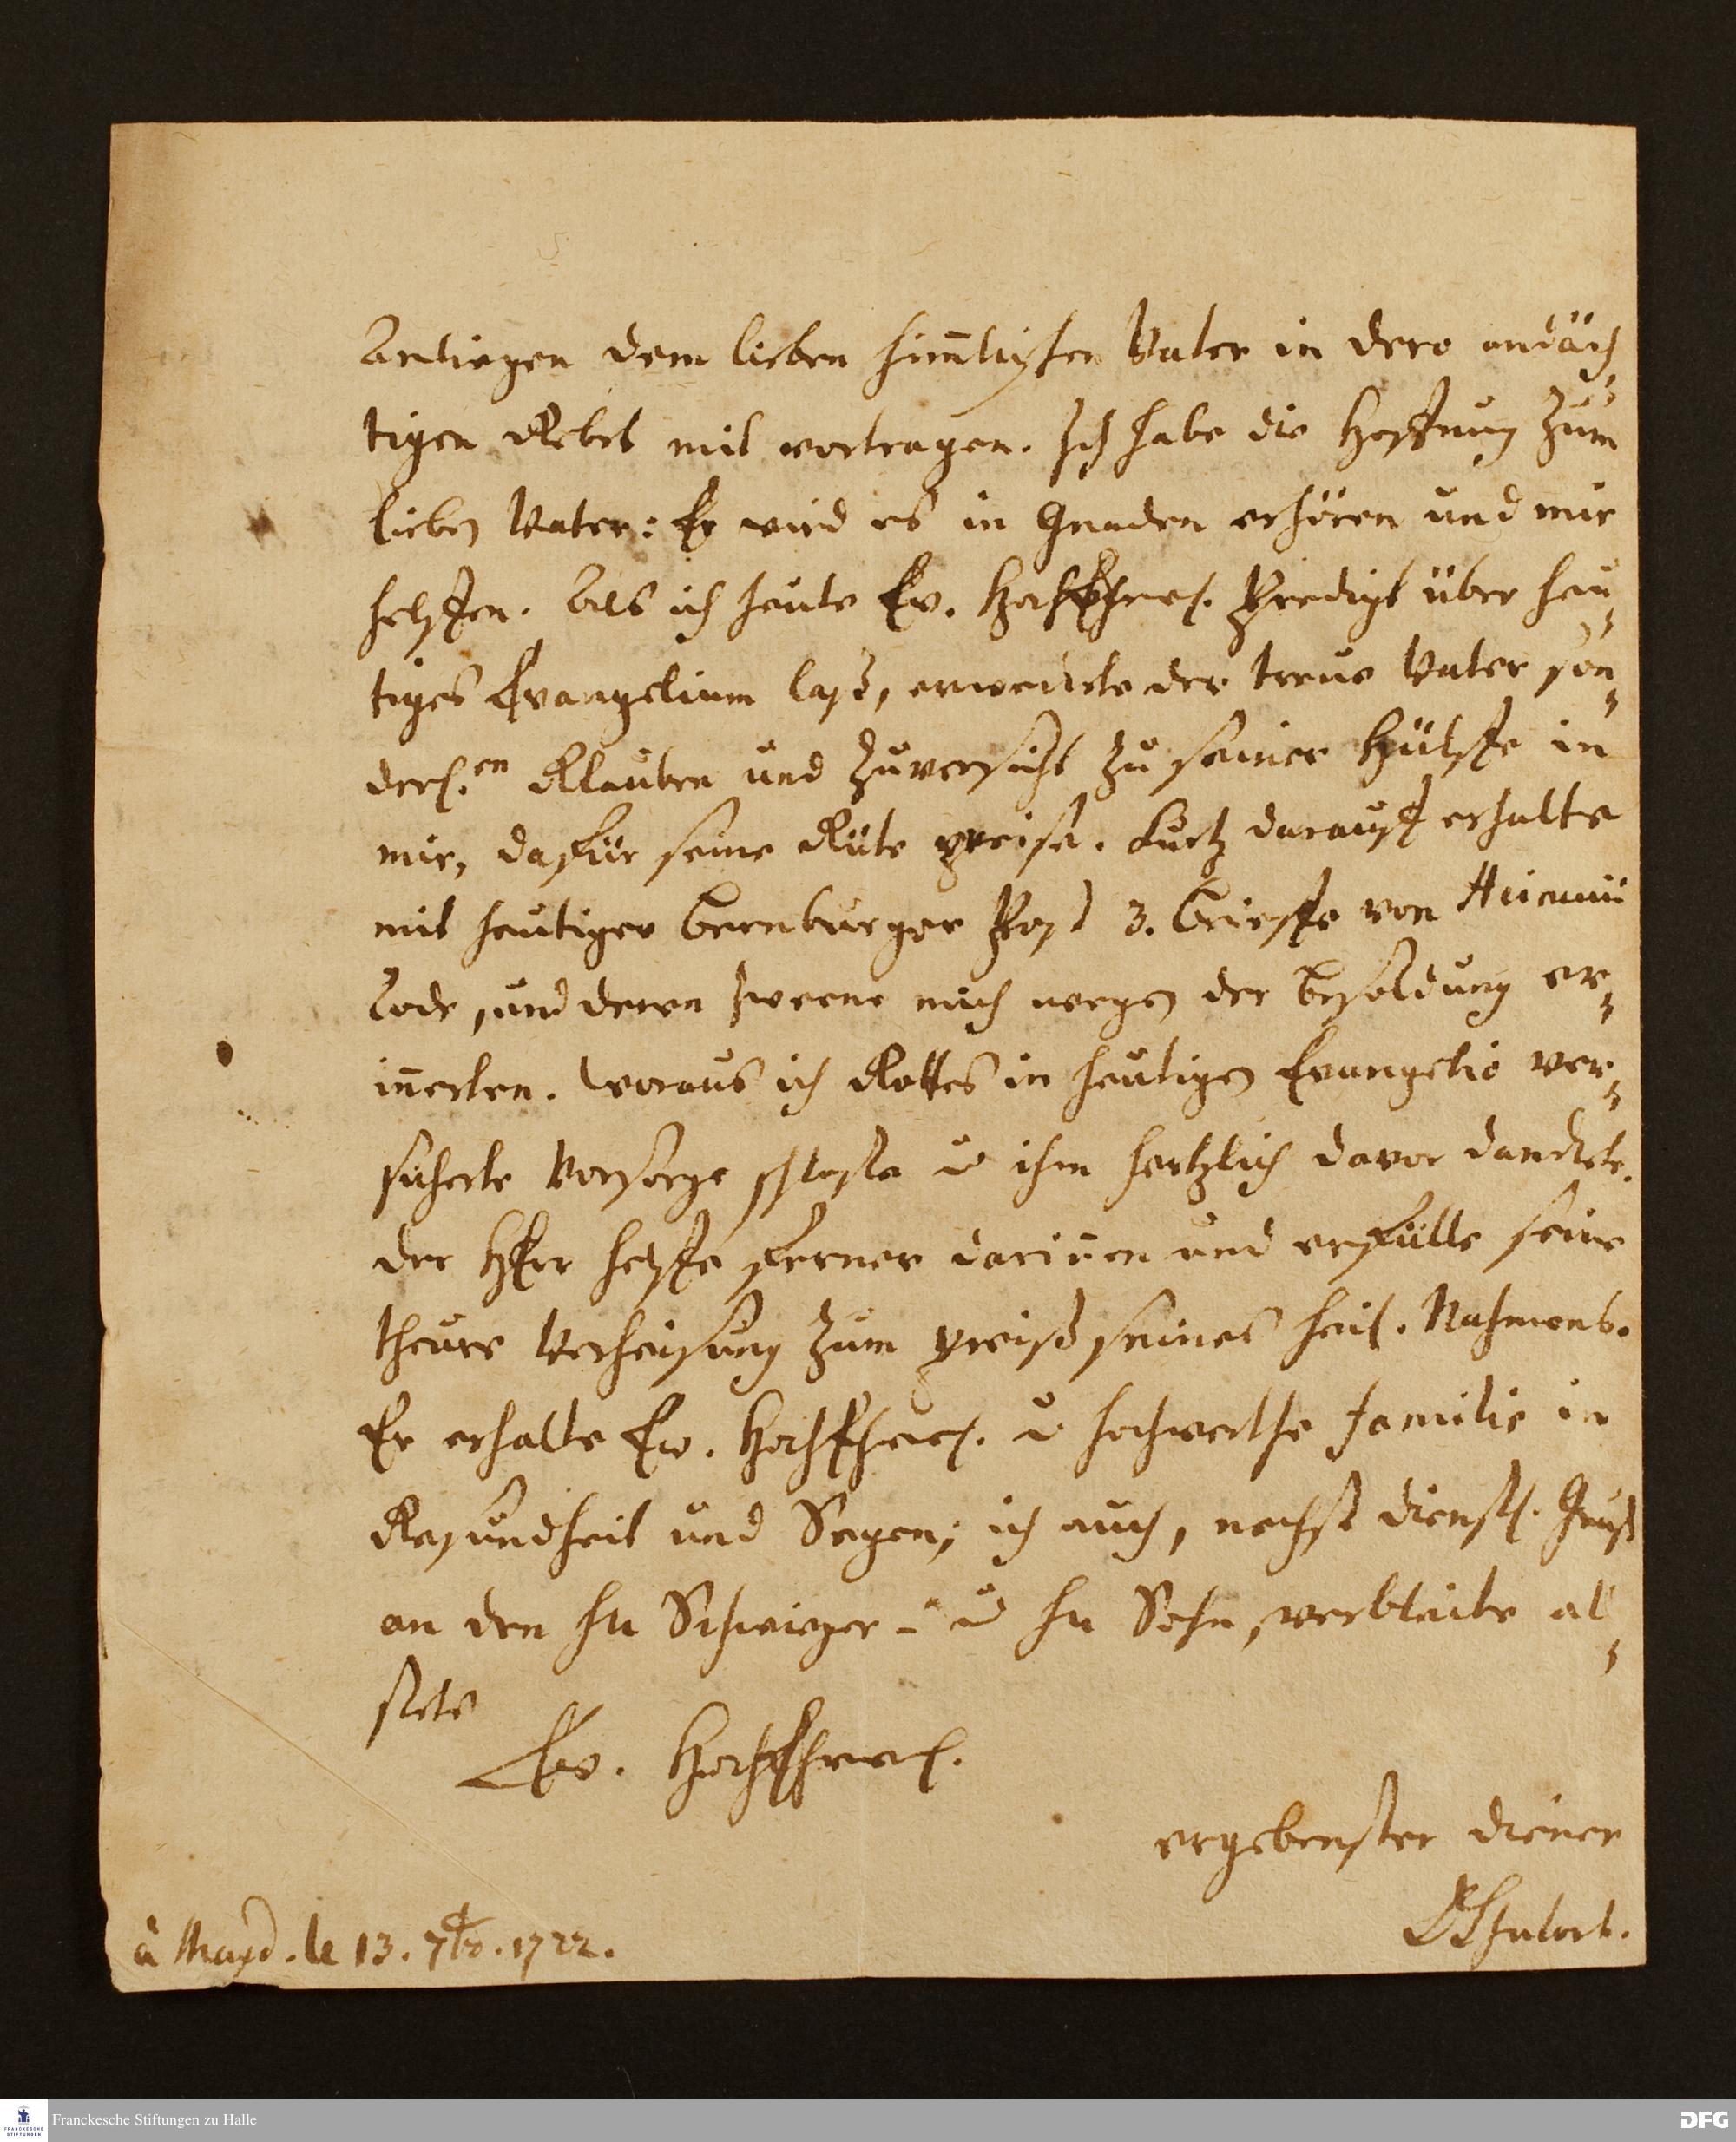 Anliegen dem lieben himlischen Vater in dero andäch¬
tigen Gebet mit vortragen. Ich habe die Hoffnung zum
lieben Vater: Er wird es in Gnaden erhören und mir
helffen. Als ich heute Ew. HochEhrw. Predigt über heu¬
tiges Evangelium laß, erweckte der treue Vater son¬
derl.en Glauben und Zuversicht zu seiner Hülffe in
mir, dafür seine Güte preise. Kurtz darauff erhalte
mit heutiger Bernburger Post 3. Brieffe von
und deren zweene mich wegen der Besoldung er¬
inerten. Woraus ich Gottes in heutigen Evangelio ver¬
sicherte Vorsorge schloße u ihm hertzlich davor danckte.
der HErr helffe ferner darinen und erfülle seine
theure Verheisung zum preiß seines heil. Nahmens.
Er erhalte Ew. HochEhrw. u hochwerthe familie in
Gesundheit und Segen; ich auch, nechst dienstl. Gruß
an den Hn Schwieger - u Hn Sohn, verbleibe al¬
stets
Ew. HochEhrw.
ergebenster diener
à Magd. le 13. 7br. 1722.
Franckesche Stiftungen zu Halle
FRANCKESCHE STIFTUNGEN
DFG